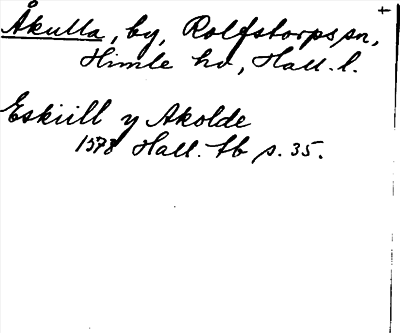 Åkulla, by, Rolfstorps sn,
Himle hd, Hall. l.
Eskiill y Akolde
1578 Hall. tb s. 35.